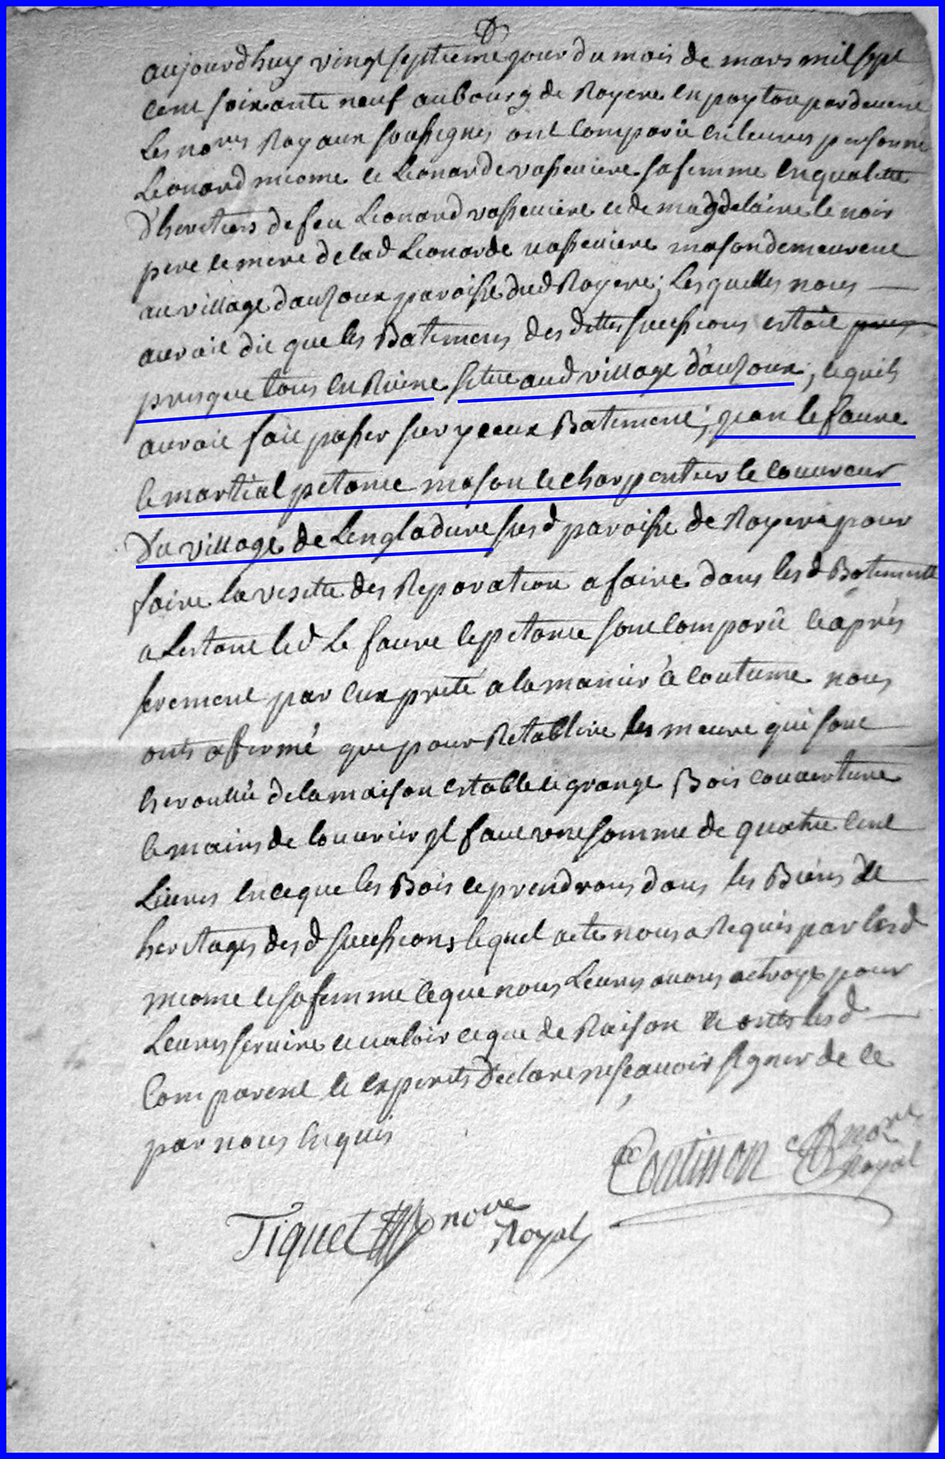 aujourdhuy vingt septieme jour du mois de mars mil sept
cent soixante neuf au bourg de Royere en poytou pardevent
Les nores Royaux soussignes ont Comparû en leures personne
Leonard micome et Leonarde vasseviere sa femme en qualitte
D'heritiers de feu Leonard vasseviere et de magdelaine le noir
pere et mere de lad Leonarde vasseviere mason demeurent
au village dauzoux paroisse dud Royere; Lesquelles nous
auroit dit que les Batimens des dittes successions estoit
presque tous en Ruine situe aud village d'auzoux, lequels
auroit fait passer sur yceux Batiment; jean le faure
et martial petome mason et charpentier et couvreur
Du village de Lengladure susd paroisse de Royere pour
faire la visitte des Reparation a faire dans lesd Batimentt
a Lestant led Le faure et petome sont Comparû et après
serement par eux prete a la manier è coutume nous
onts afirmé que pour Retablire les meure qui sont
heroullé de la maison estable et grange Bois couverture
et mains de louvrier jl faut une somme de quatre cent
Livres en ce que les Bois ce prendrons dans les Biens et
heritages desd successions lequel acte nous a Requis par lesd
micome et sa femme ce que nous Leures avons actroye pour
Leures servire et valoir ce que de Raison et onts lesd
Comparent et experts Declare ne scavoir signer de ce
par nous enquis
Coutisson nore Royal
Tiquet nore
Royal